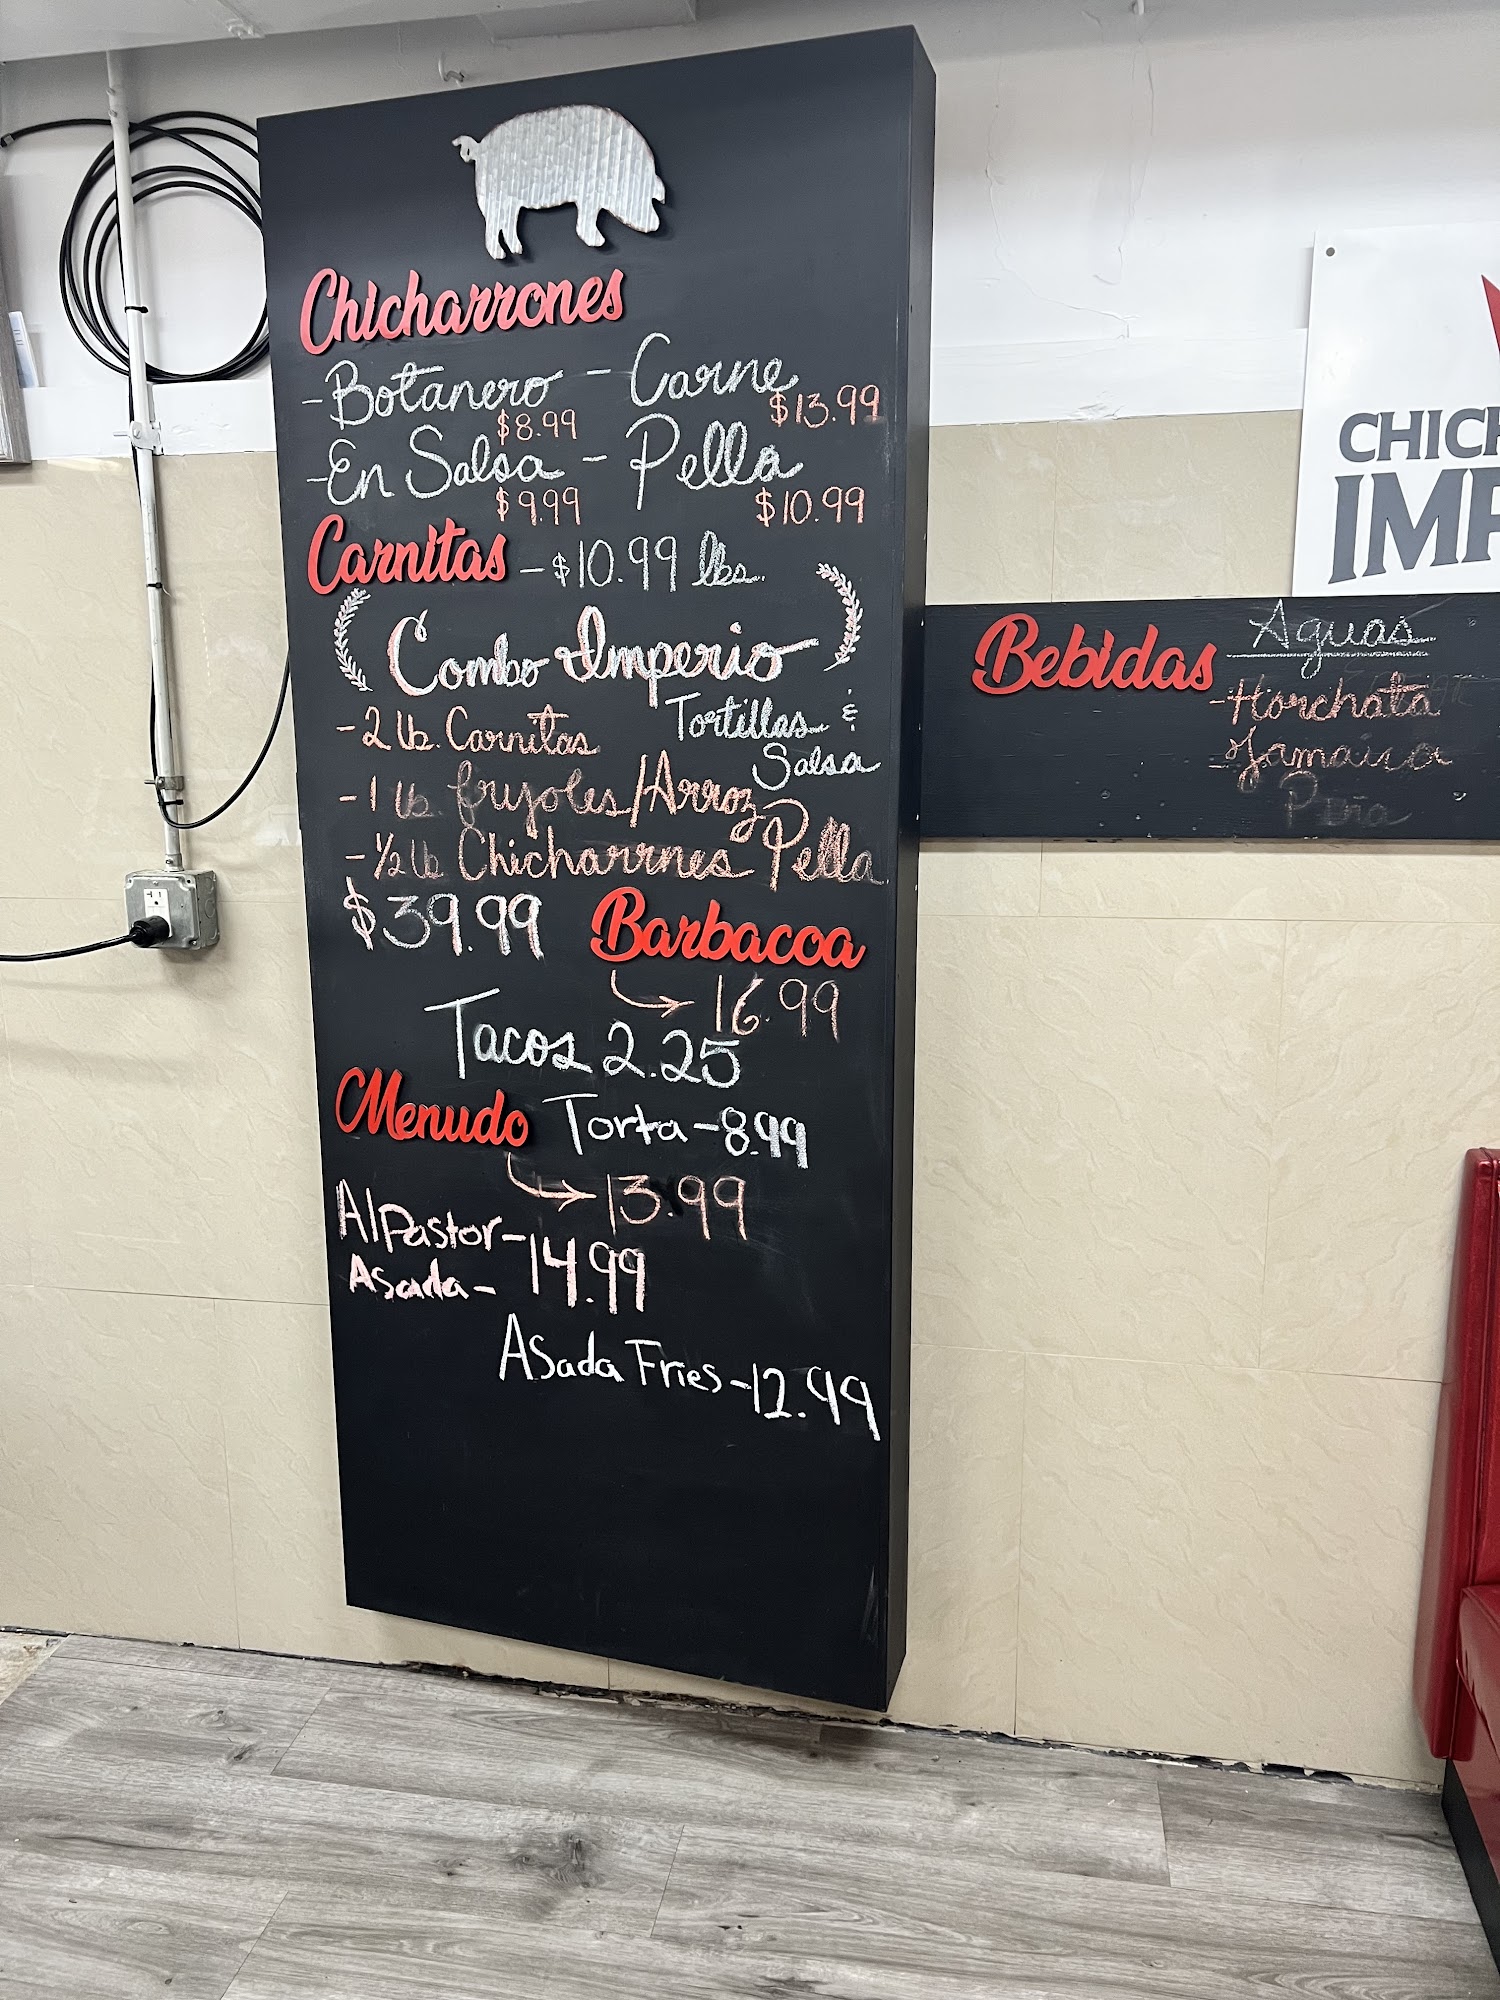 Chicharrones
- Botanero - Carne
$8.99 $13.99
- En Salsa - Pella
$9.99 $10.99
Carnitas - $10.99 lbs.
Combo Imperio
- 2 lb. Carnitas Tortillas &
Salsa
- 1 lb fryoles/Arroz
- 1/2 lb Chicharrnes Pella
$39.99 Barbacoa
16.99
Tacos 2.25
Menudo Torta - 8.99
13.99
Al Pastor - 14.99
Asada -
Asada Fries - 12.99
Bebidas Aguas
- Horchata
- Jamaica
Piña
CHIC
IMP